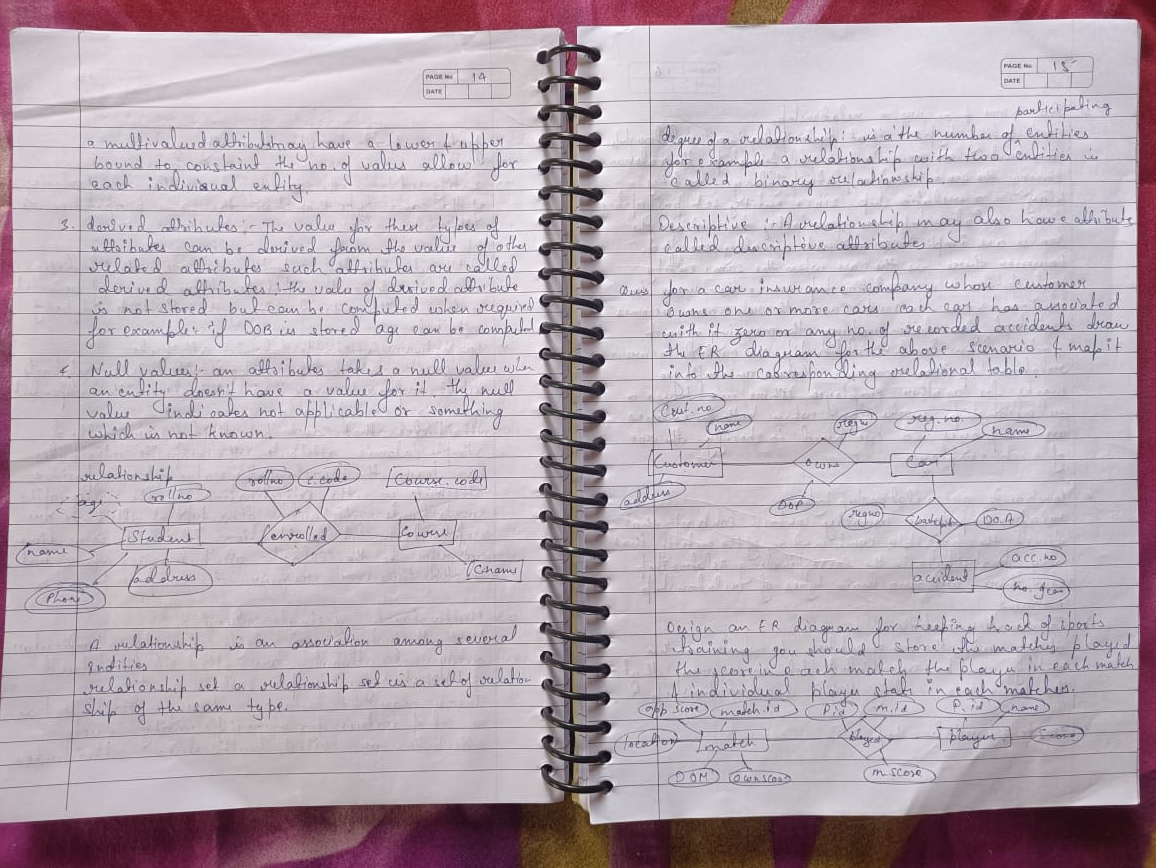 PAGE No 14
DATE
a multivalued attributs may have a lower & upper
bound to constaint the no. of value allow for
each individual entity.
3. derived attributes :- The value for these types of
attributes can be derived from the value of other
related attributes such attributes are called
derived attributes. the value of derived attribute
is not stored but can be computed when required
for example:- if DOB is stored age can be computed
4. Null values:- an attributes takes a null value when
an entity doesn't have a value for it. the null
value indicates not applicable or something
which is not known.
relationship
age
roll no
roll no
c.code
Course.code
Student
enrolled
Course
name
address
C.name
Phone
A relationship is an association among several
Entities
relationship set a relationship set is a set of relation
ship of the same type.
PAGE No 15
DATE
participating
degree of a relationship: is a the number of entities
for example a relationship with two entities is
called binary relationship.
Descriptive :- A relationship may also have attribute
called discriptive attributes
Ques for a car insurance company whose customer
owns one or more cars each car has associated
with it zero or any no. of recorded accidents draw
the ER diagram for the above scenario & map it
into the corresponding relational table.
Cust. no
name
regno
reg. no.
name
Customer
Owns
Car
address
DOP
regno
D.O.A
accident
acc. no
Design an ER diagram for keeping track of sports
training you should store the matches played
the score in each match the player in each match
& individual player stats in each matches.
opp score
match.id
P.id
m.id
P. id
name
location
match
played
player
score
DOM
Own score
m.score